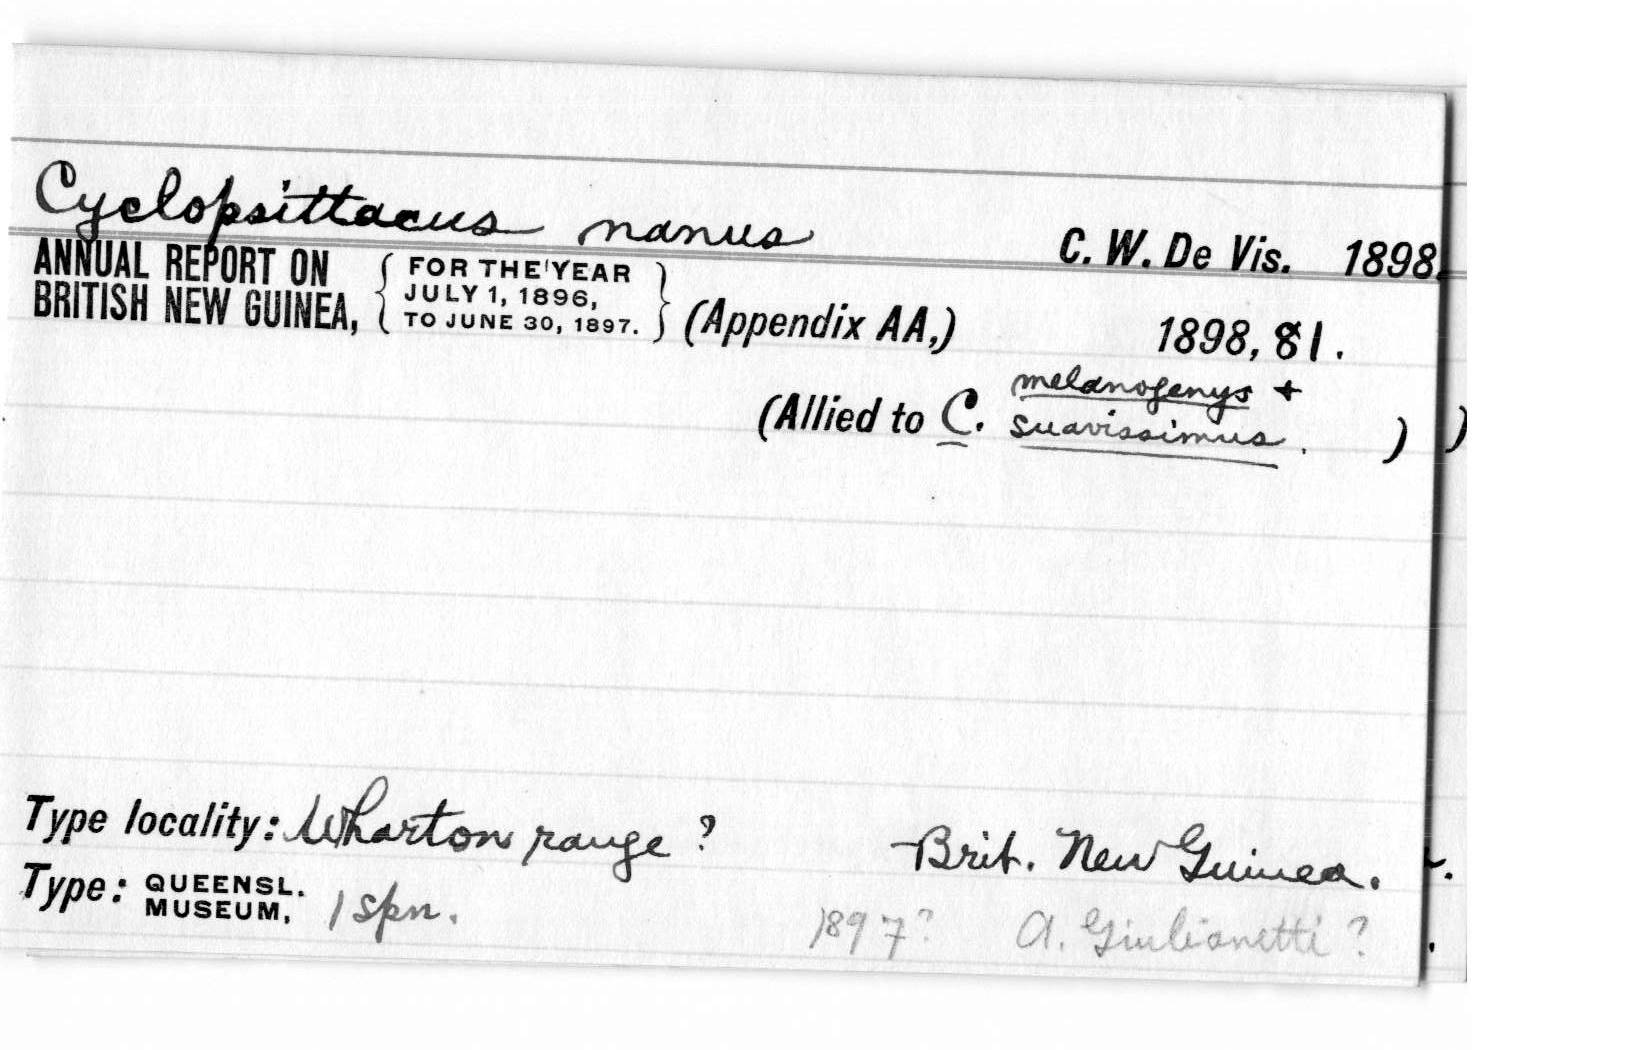 Cyclopsittacus nanus C. W. De Vis. 1898.
ANNUAL REPORT ON { FOR THE YEAR }
BRITISH NEW GUINEA, JULY 1, 1896, (Appendix AA,) 1898, 81.
TO JUNE 30, 1897.
melanogenys +
(Allied to C. suavissimus. ) )
Type locality: Wharton range ? Brit. New Guinea.
Type: QUEENSL. MUSEUM, 1 spn. 1897? A. Giulianetti ?